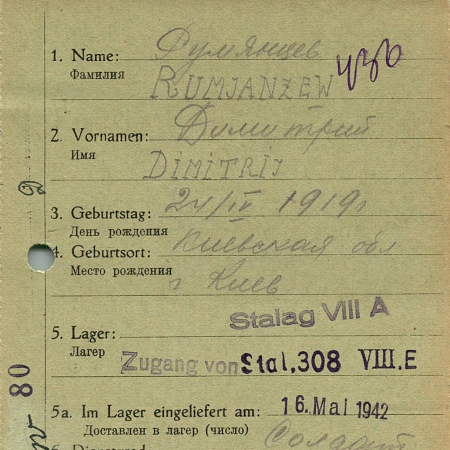 1. Name: Румянцев
Фамилия
RUMJANZEW
2. Vornamen: Димитрий
Имя
DIMITRIJ
3. Geburtstag: 24/IV 1919г
День рождения
4. Geburtsort: Киевская обл
Место рождения
г Киев
Stalag VIII A
5. Lager:
Лагер
Zugang von Stal. 308 VIII. E
80
5a. Im Lager eingeliefert am: 16. Mai 1942
Доставлен в лагер (число)
Солдат
6. Dienstgrad